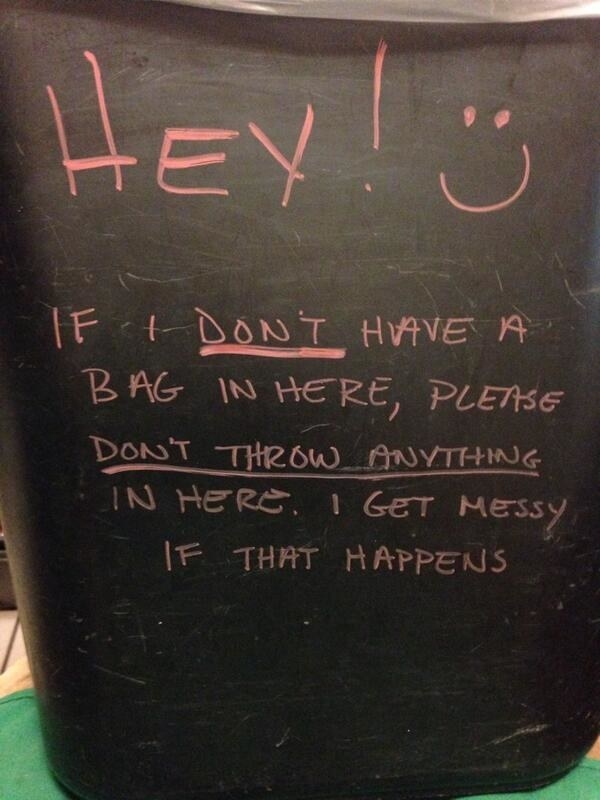 HEY! :)
IF I DON'T HAVE A
BAG IN HERE, PLEASE
DON'T THROW ANYTHING
IN HERE. I GET MESSY
IF THAT HAPPENS